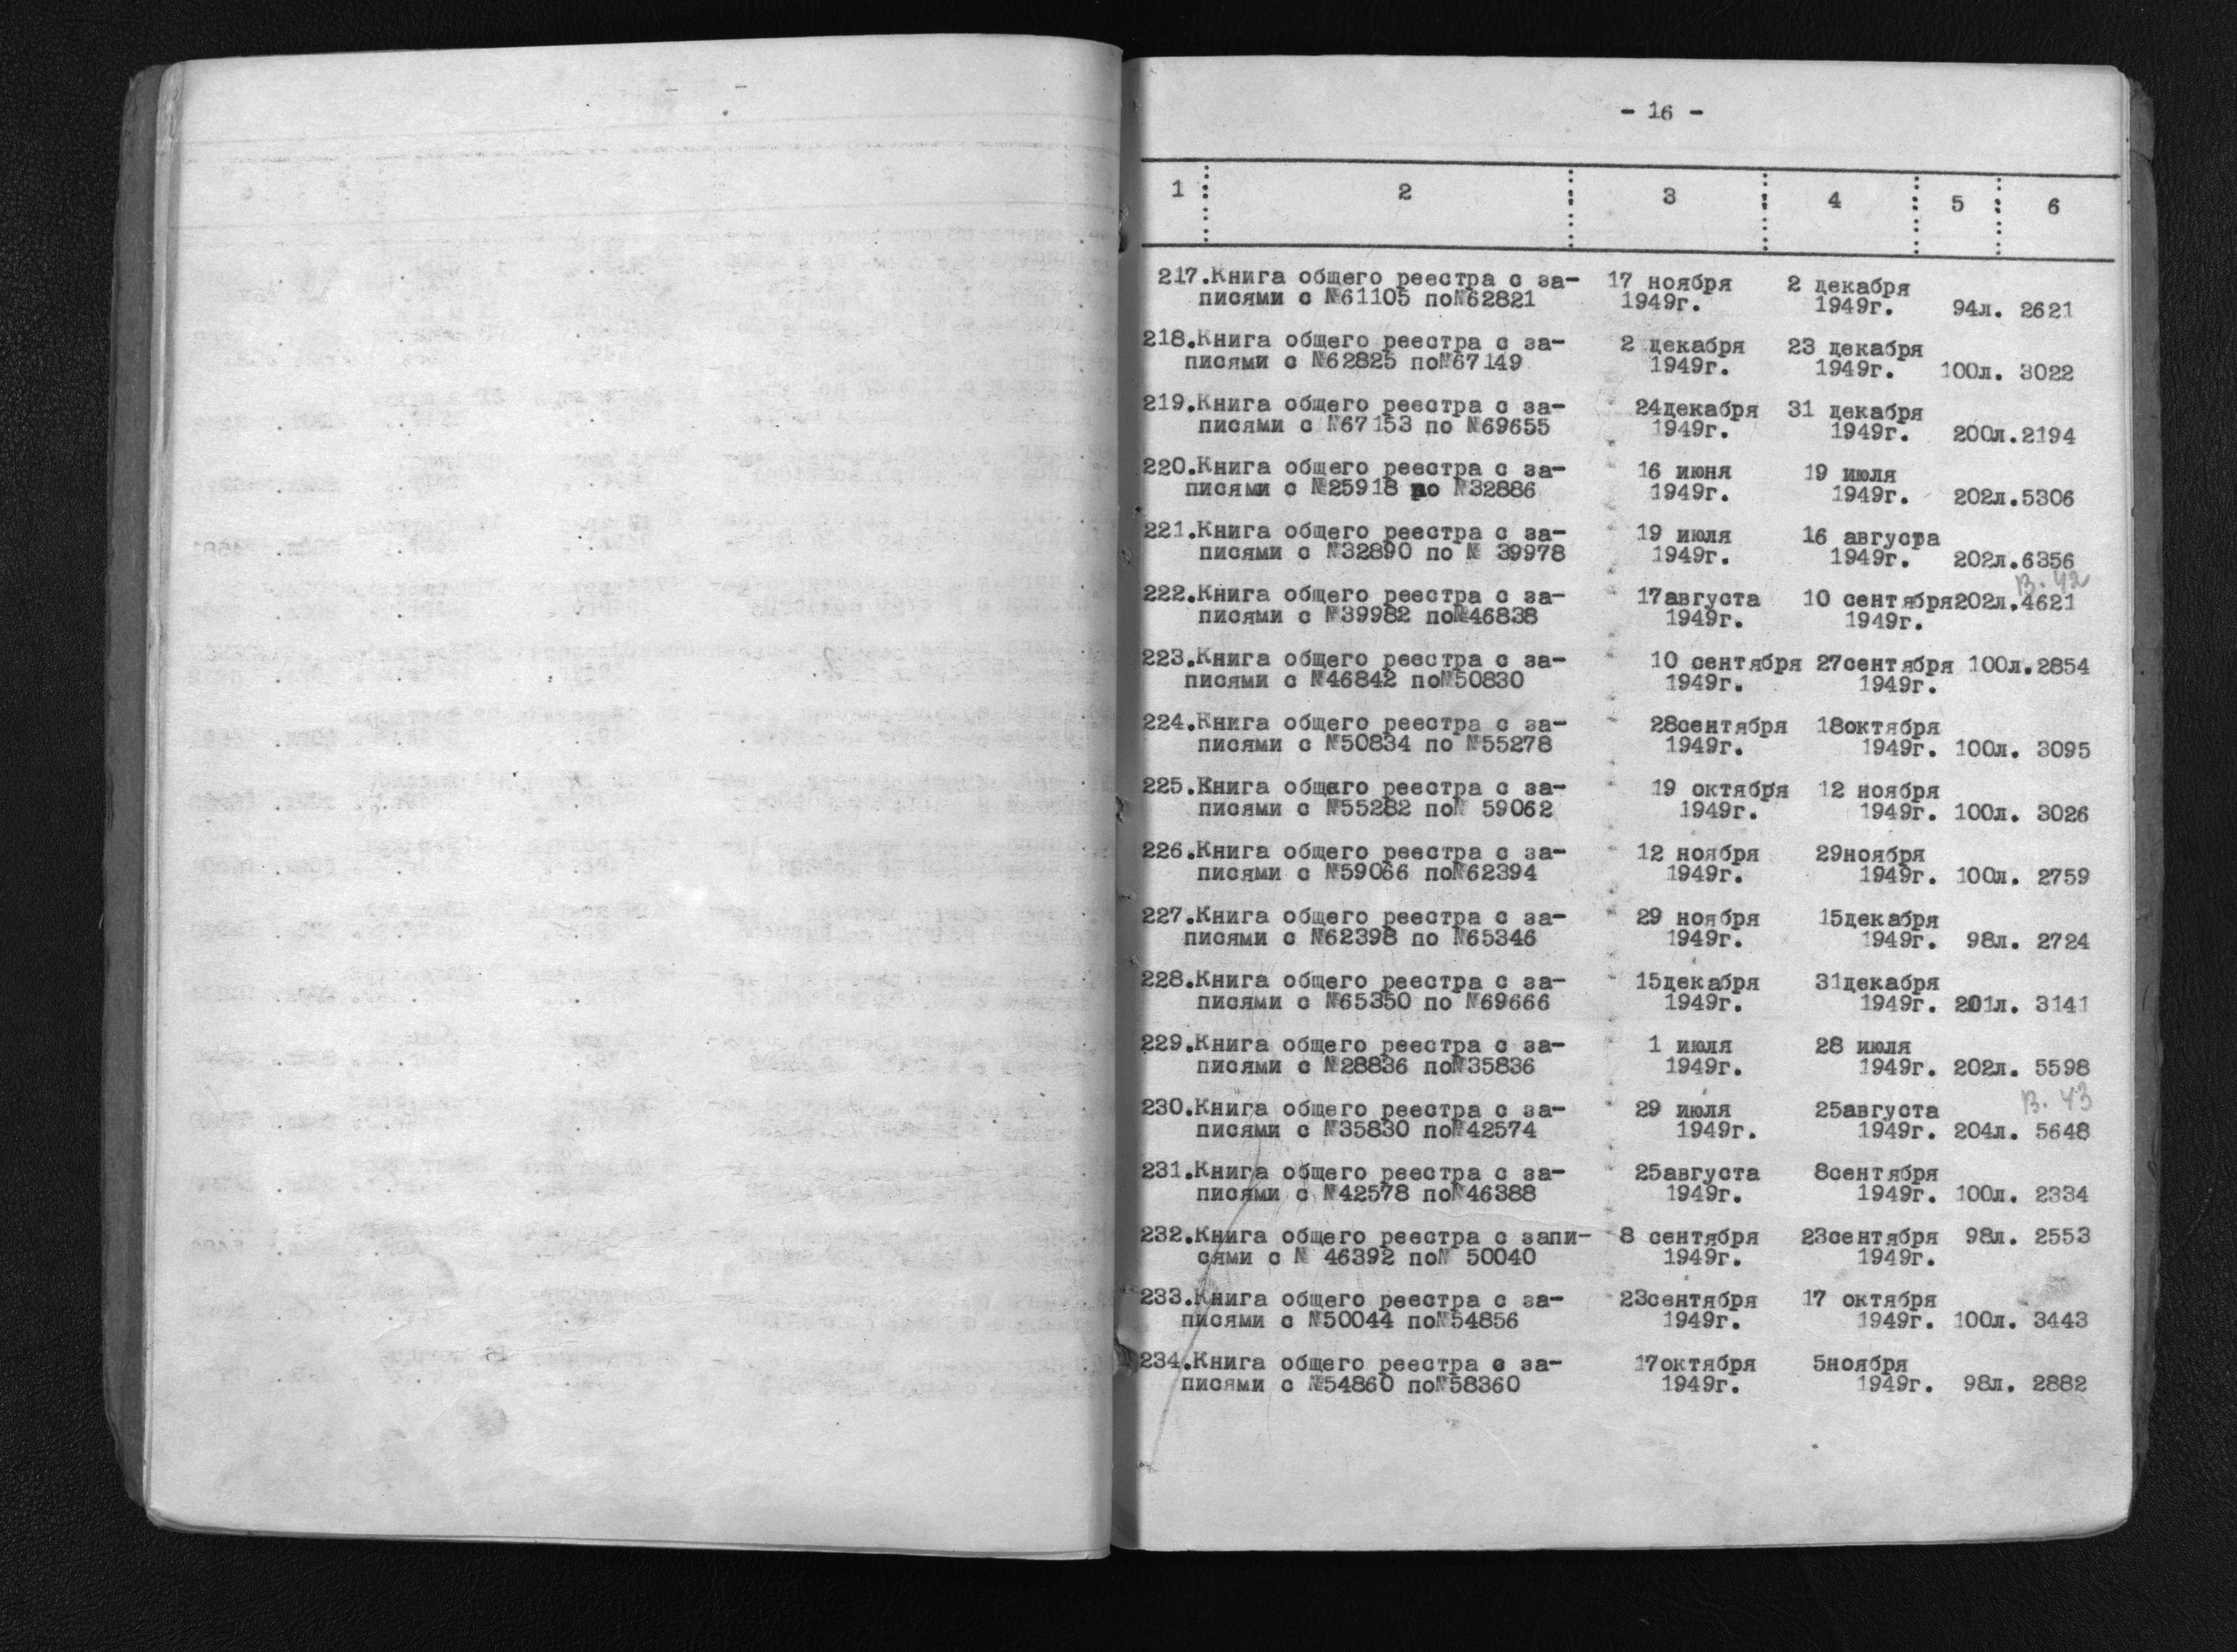 - 16 -
1 2 3 4 5 6
217.Книга общего реестра с за- 17 ноября 2 декабря
писями с №61105 по№62821 1949г. 1949г. 94л. 2621
218.Книга общего реестра с за- 2 декабря 23 декабря
писями с №62825 по№67149 1949г. 1949г. 100л. 3022
219.Книга общего реестра с за- 24декабря 31 декабря
писями с №67153 по №69655 1949г. 1949г. 200л.2194
220.Книга общего реестра с за- 16 июня 19 июля
писями с №25918 по №32886 1949г. 1949г. 202л.5306
221.Книга общего реестра с за- 19 июля 16 августа
писями с №32890 по № 39978 1949г. 1949г. 202л.6356
В. 42
222.Книга общего реестра с за- 17августа 10 сентября202л.4621
писями с №39982 по№46838 1949г. 1949г.
223.Книга общего реестра с за- 10 сентября 27сентября 100л.2854
писями с №46842 по№50830 1949г. 1949г.
224.Книга общего реестра с за- 28сентября 18октября
писями с №50834 по №55278 1949г. 1949г. 100л. 3095
225.Книга общего реестра с за- 19 октября 12 ноября
писями с №55282 по№ 59062 1949г. 1949г. 100л. 3026
226.Книга общего реестра с за- 12 ноября 29ноября
писями с №59066 по№62394 1949г. 1949г. 100л. 2759
227.Книга общего реестра с за- 29 ноября 15декабря
писями с №62398 по №65346 1949г. 1949г. 98л. 2724
228.Книга общего реестра с за- 15декабря 31декабря
писями с №65350 по №69666 1949г. 1949г. 201л. 3141
229.Книга общего реестра с за- 1 июля 28 июля
писями с №28836 по№35836 1949г. 1949г. 202л. 5598
В. 43
230.Книга общего реестра с за- 29 июля 25августа
писями с №35830 по№42574 1949г. 1949г. 204л. 5648
231.Книга общего реестра с за- 25августа 8сентября
писями с №42578 по№46388 1949г. 1949г. 100л. 2334
232.Книга общего реестра с запи- 8 сентября 23сентября 98л. 2553
сями с № 46392 по№ 50040 1949г. 1949г.
233.Книга общего реестра с за- 23сентября 17 октября
писями с №50044 по№54856 1949г. 1949г. 100л. 3443
234.Книга общего реестра с за- 17октября 5ноября
писями с №54860 по№58360 1949г. 1949г. 98л. 2882